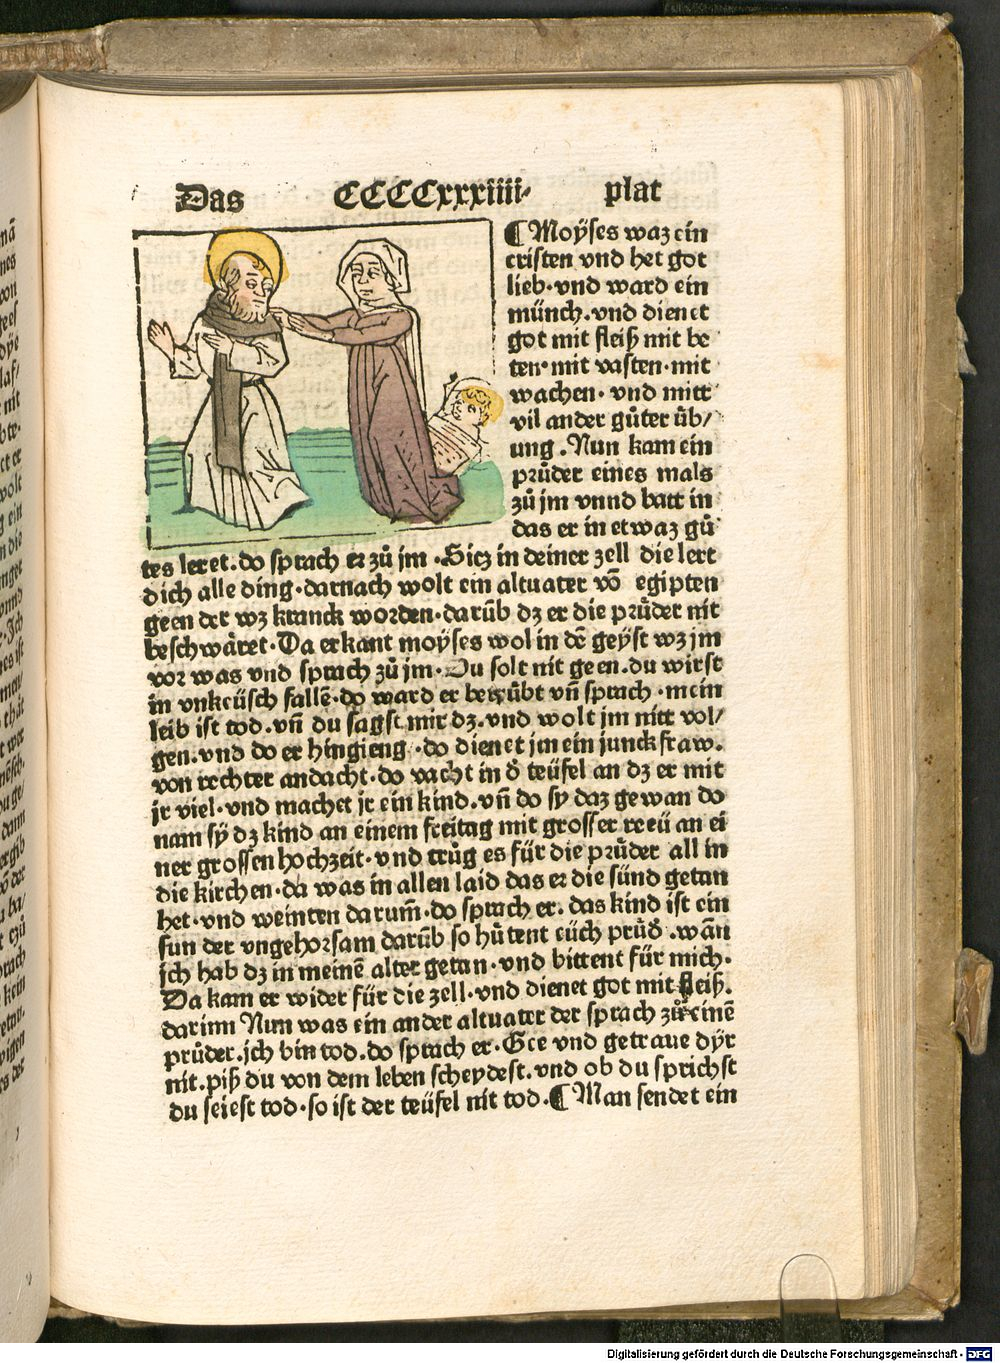 Das CCCCxxxiiii· plat
¶ Moÿses waz ein
cristen vnd het got
lieb·vnd ward ein
münch.vnd dienet
got mit fleiß mit be
ten·mit vasten·mit
wachen·vnd mitt
vil ander gůter üb/
ung.Nun kam ein
průder eines mals
zů jm vnnd batt in
das er in etwaz gů
tes leret.do sprach er zů jm·Sicz in deiner zell die lert
dich alle ding·darnach wolt ein altuater võ egipten
geen der wz kranck worden·darüb dz er die průder nit
beschwäret·Da erkant moÿses wol in dē geyst wz jm
vor was vnd sprach zů jm·Du solt nit geen.du wirst
in vnkeüsch fallē·do ward er betrübt vñ sprach·mein
leib ist tod.vñ du sagst mir dz.vnd wolt jm nitt vol/
gen.vnd do er hingieng·do dienet jm ein junckfraw.
von rechter andacht·do vacht in d̕ teüfel an dz er mit
jr viel·vnd machet jr ein kind.vñ do sy daz gewan do
nam sÿ dz kind an einem freitag mit grosser reeü an ei
ner grossen hochzeit·vnd trůg es für die průder all in
die kirchen·da was in allen laid das er die sünd getan
het·vnd weinten darum̄·do sprach er.das kind ist ein
sun der vngehorsam darüb so hůtent eüch průd̕.wān
jch hab dz in meinē alter getan·vnd bittent für mich.
Da kam er wider für die zell·vnd dienet got mit fleiß.
darinn Nun was ein ander altuater der sprach zů einē
průder.jch bin tod.do sprach er·Gee vnd getraue dÿr
nit.piß du von dem leben scheydest.vnd ob du sprichst
du seiest tod·so ist der teüfel nit tod.¶ Man sendet ein
Digitalisierung gefördert durch die Deutsche Forschungsgemeinschaft - DFG